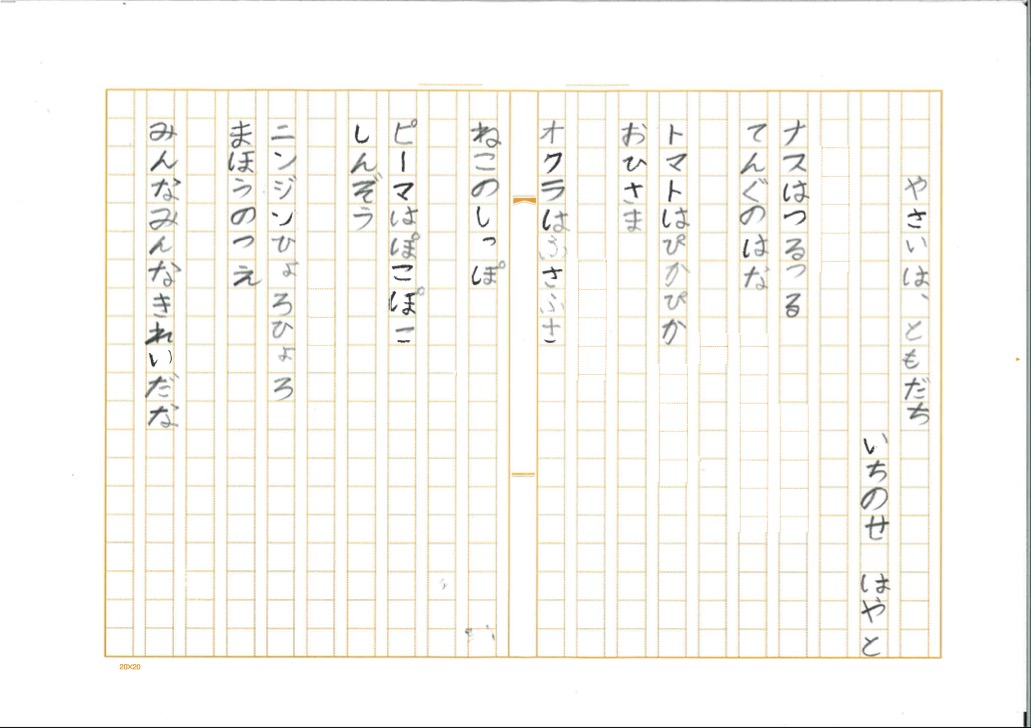 やさいは、ともだち
いちのせ　はやと
ナスはつるつる
てんぐのはな
トマトはぴかぴか
おひさま
オクラはふさふさ
ねこのしっぽ
ピーマはぽこぽこ
しんぞう
ニンジンひょろひょろ
まほうのつえ
みんなみんなきれいだな
20×20